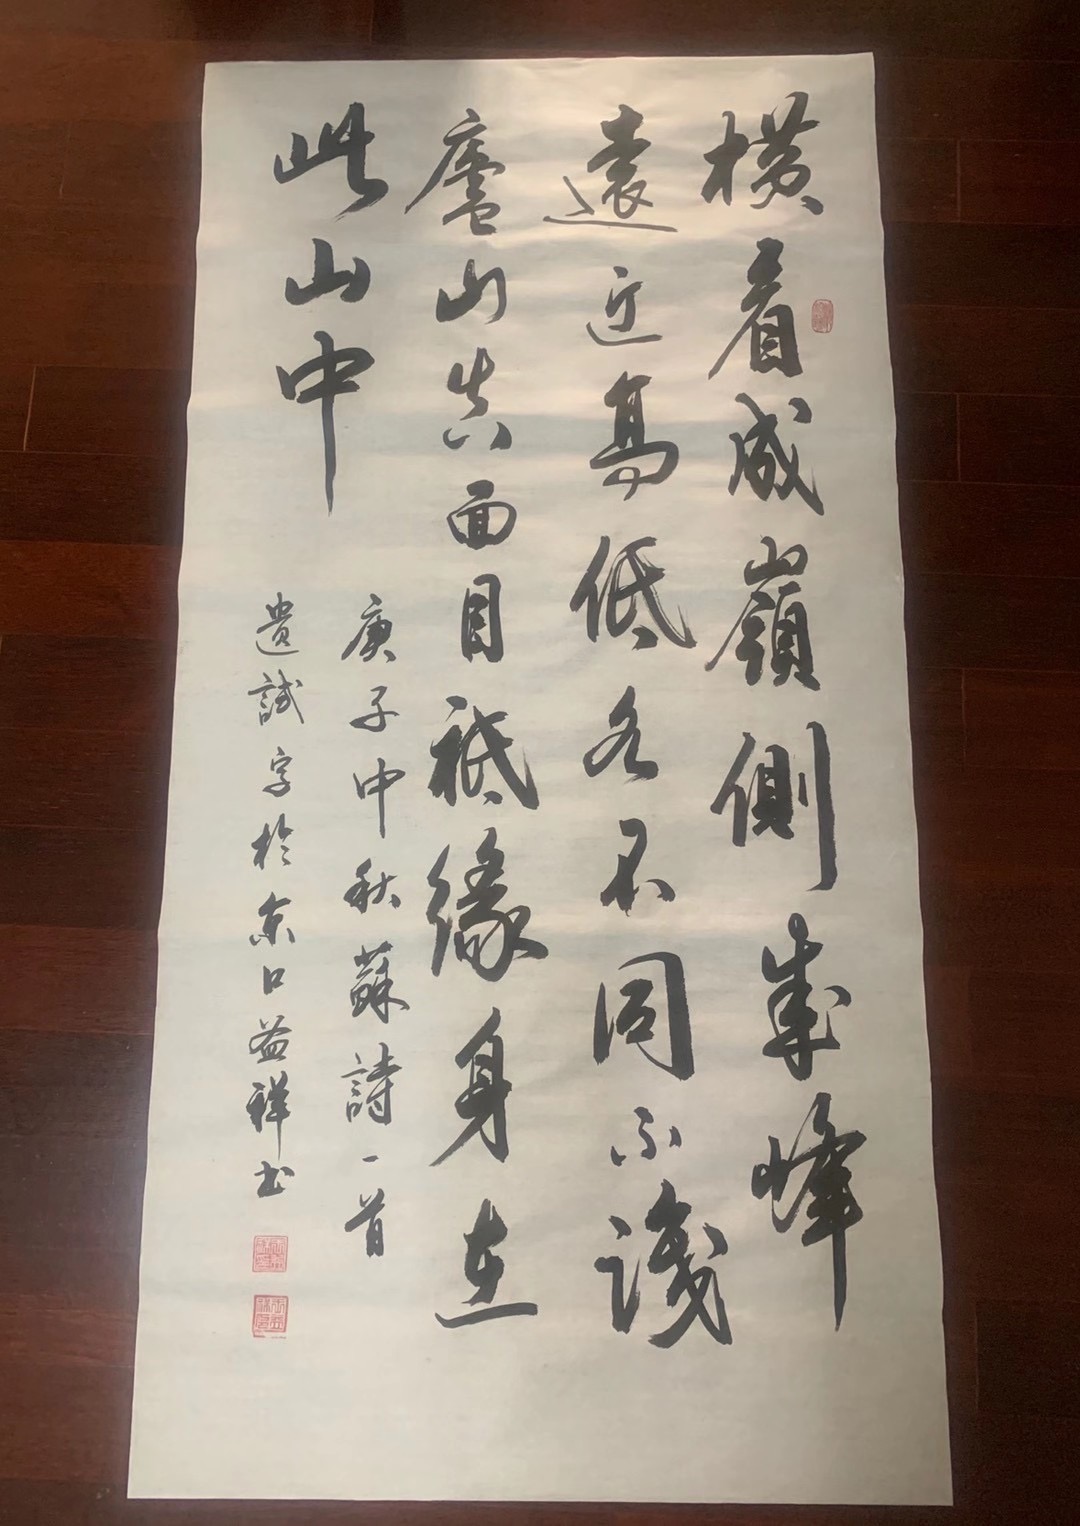 橫看成嶺側成峰
遠近高低各不同不識
廬山真面目祇緣身在
此山中
庚子中秋蘇詩一首
遣試字於京口益祥书